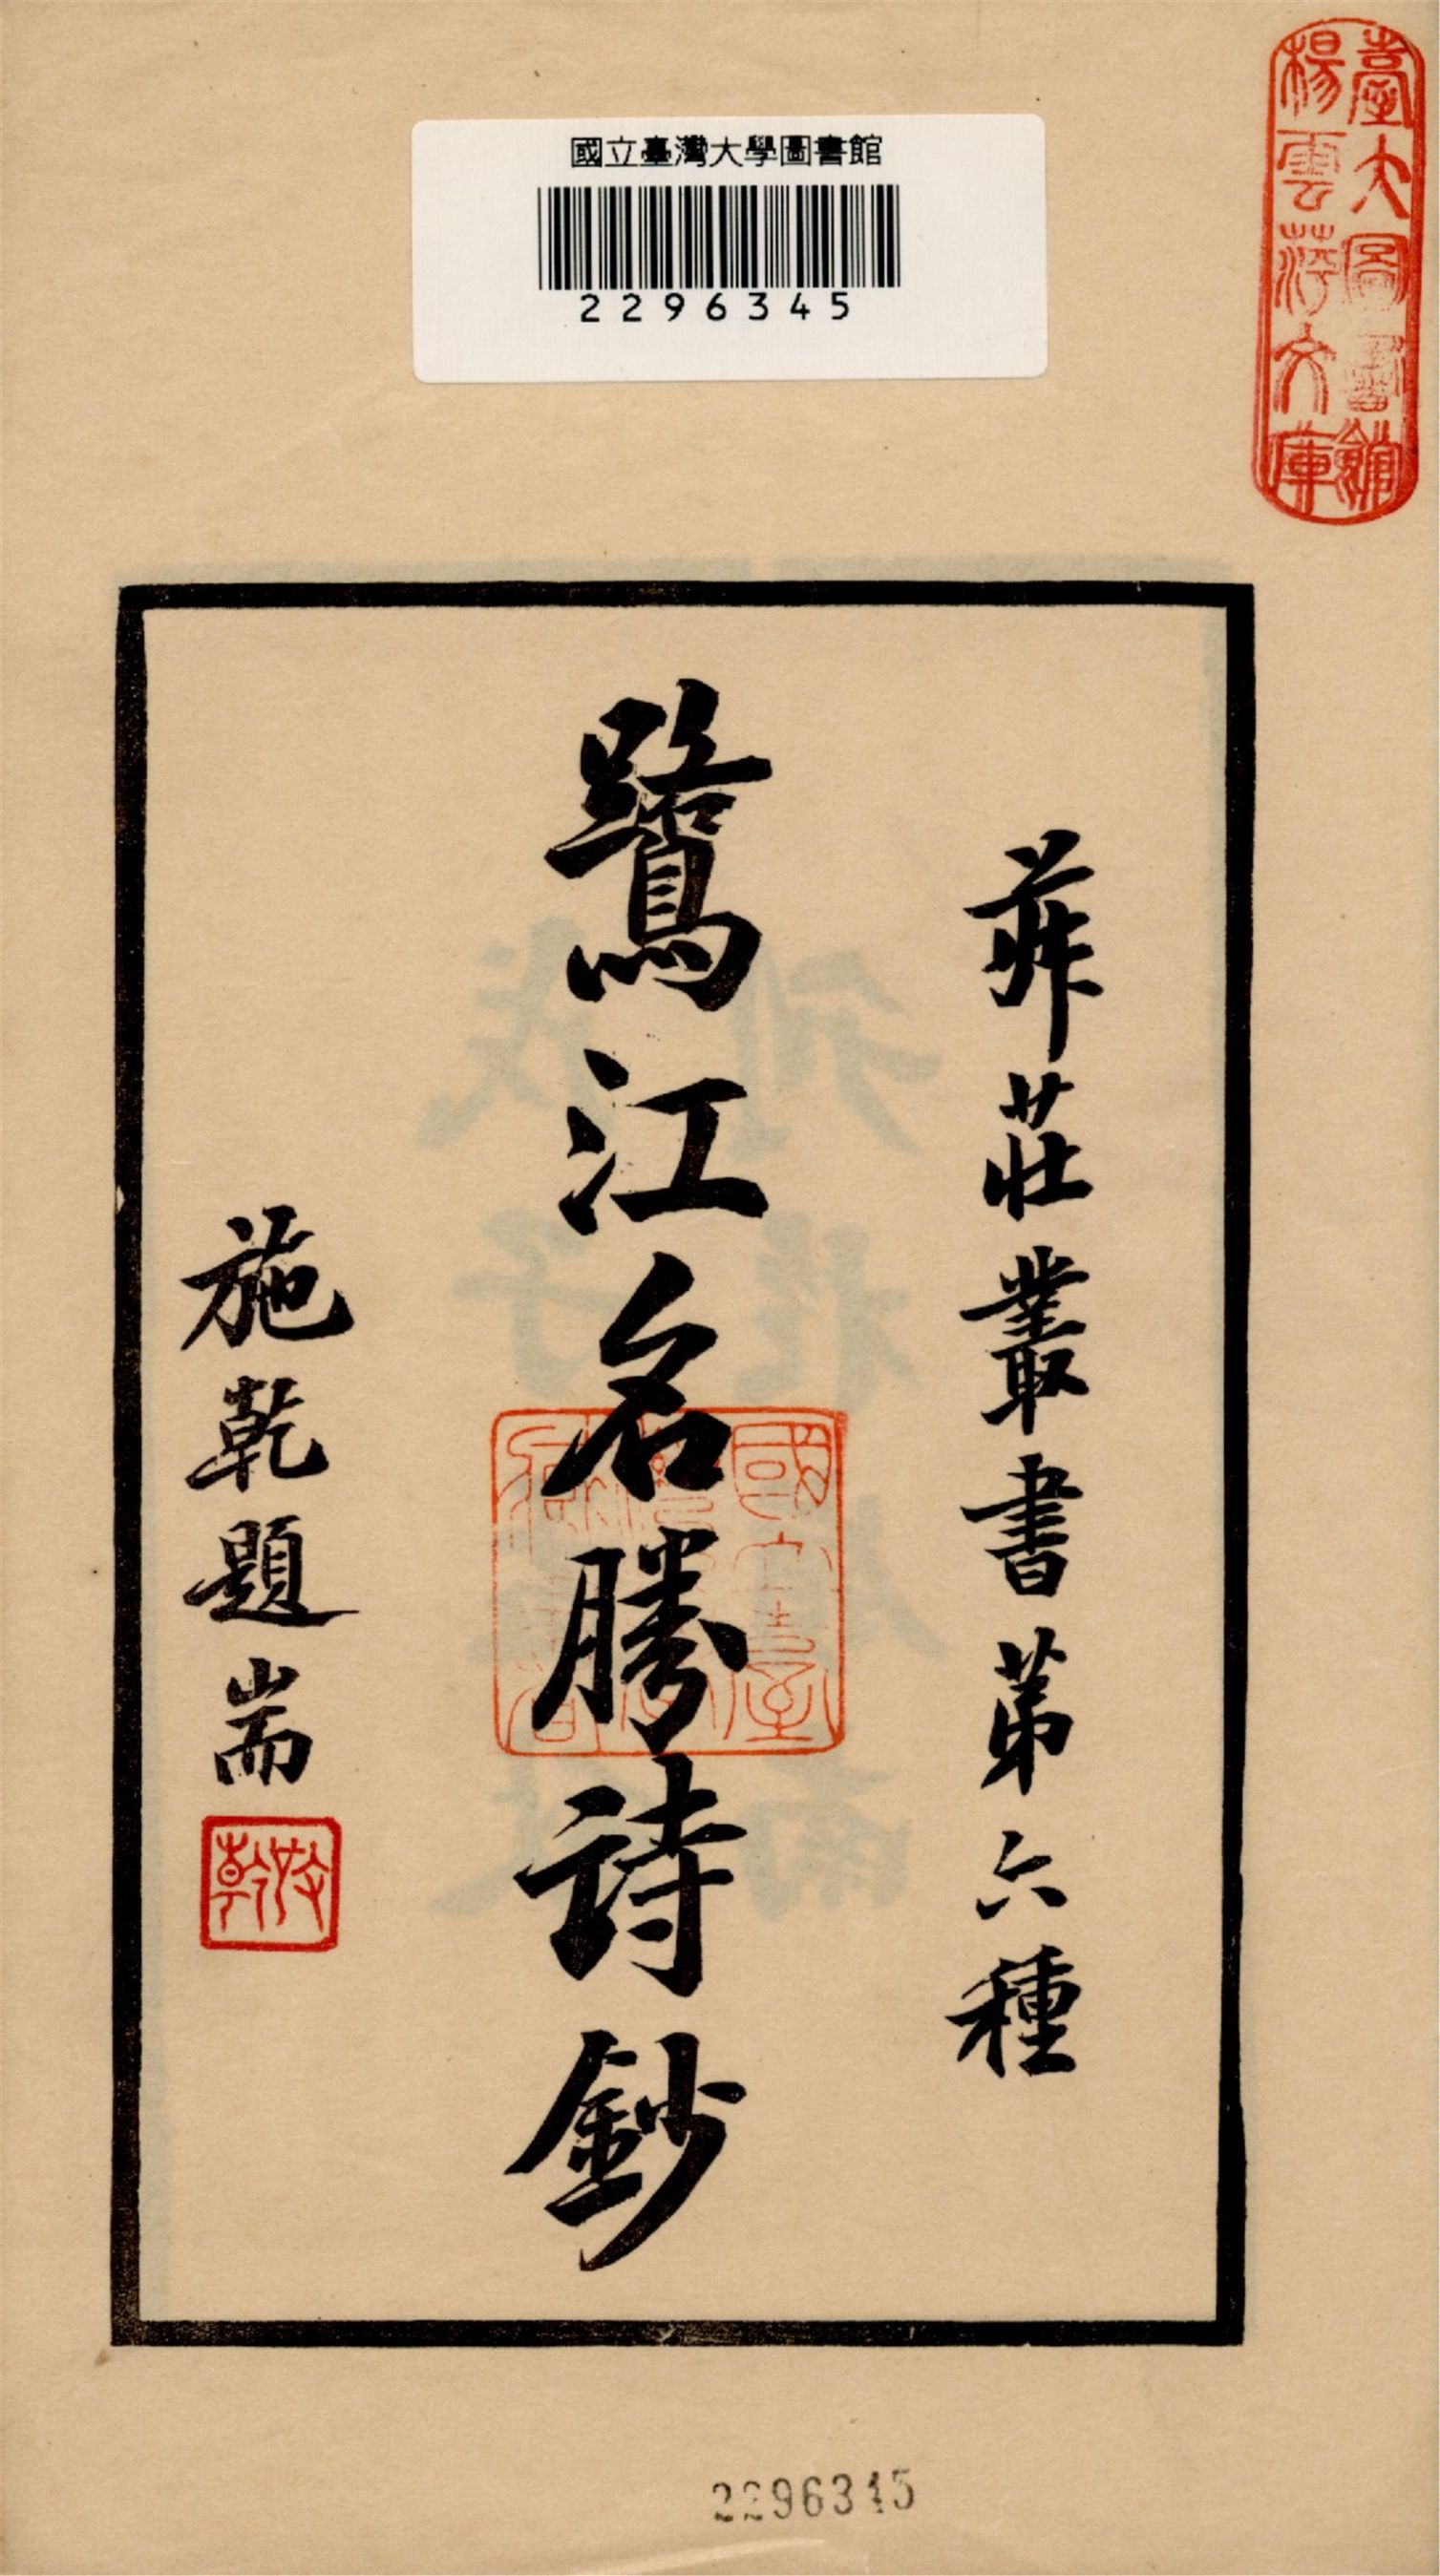 國立臺灣大學圖書館
2296345
臺大圖書館
楊雲萍文庫
菽莊叢書第六種
鷺江名勝詩鈔
施乾題耑
2296345